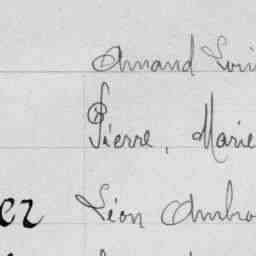 Armand Loui
Pierre, Marie
er Léon Ambro